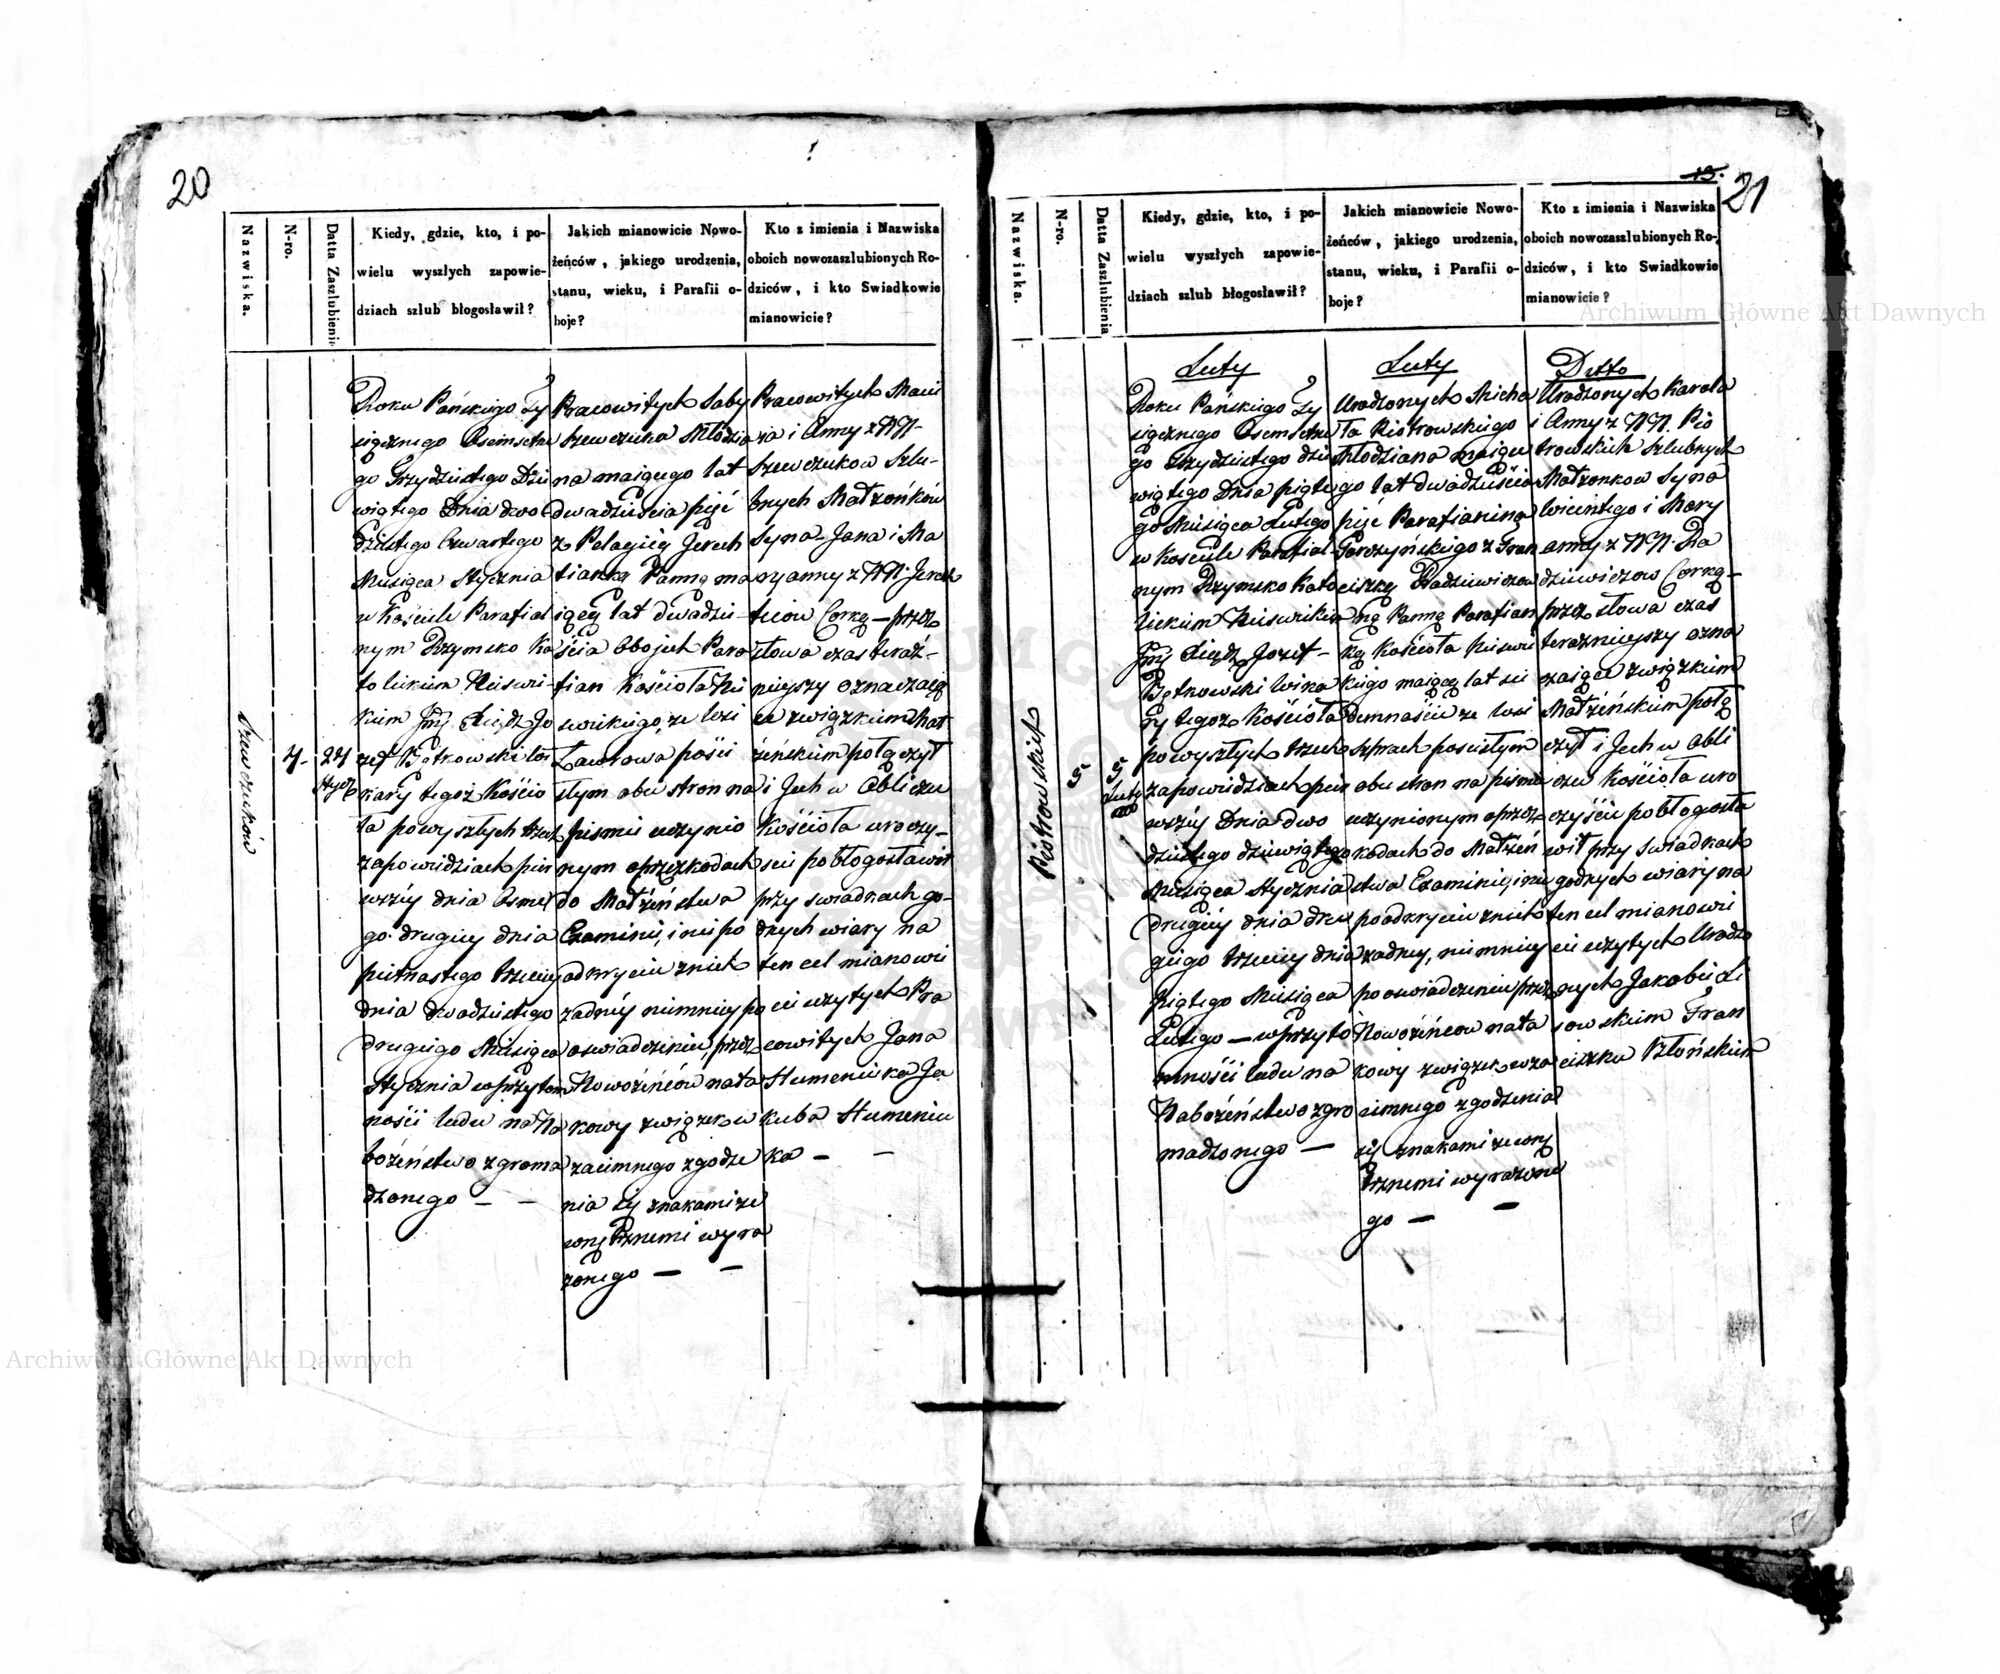 20
Nazwiska.
N-ro.
Datta Zaszlubienia
Kiedy, gdzie, kto, i po-
wielu wyszłych zapowie-
dziach szlub błogosławił?
Jakich mianowicie Nowo-
żeńców, jakiego urodzenia,
stanu, wieku, i Parafii o-
boje?
Kto z imienia i Nazwiska
oboich nowozaszlubionych Ro-
dziców, i kto Swiadkowie
mianowicie?
Szewczuków
4.
24
Stycz
Roku Pańskiego Ty
siącznego Osemsetne
go Trzydziestego Dzie
wiątego Dnia dwo-
dziestego Czwartego
Miesiąca Stycznia
w Kościele Parafial
nym Rzymsko Ka
tolickim Nieswi-
kim Jmć Xiądz Jo
zef Bętkowski Wi
kary tegoż Kościo
ła powyszłych trzech
zapowiedziach pier
wszéy dnia Osmel
go. drugiey dnia
pietnastego trzeciey
dnia dwadziestego
drugiego Miesiąca
Stycznia w przytom
ności ludu na Na
bożeństwo zgroma
dzonego — —
Pracowitych Saby
Szewczuka Młodzia
na maiącego lat
dwadzieścia pięć
z Pelagiią Jerech
tianką Panną ma
iącą lat dwadzie-
ścia Obojech Para
fian Kościoła Nie
swickiego, ze Wsi
Ławrowa pości
słym obu stron na
piśmie uczynio
nym oprzezkodach
do Małżeństwa
Examinie, i nie po
odkryciu znich
żadnéy niemniey po
oswiadczeniu, przez
Nowożeńców nata
kowy związek w
zaiemnego zgodze
nia się znakami ze
wnętrznemi wyra
żonego — —
Pracowitych Maci
eia i Anny z NN-
Szewczukow Szlu-
bnych Małżonków
Syna- Jana i Ma
ryanny z NN. Jerech
ticow Corką — przez
słowa czas teráź-
nieyszy oznaczaią
ce związkiem Mał
żeńskim połączył
i Jech w Obliczu
Kościoła uroczy-
ście pobłogosławił
przy swiadkach go-
dnych wiary na
ten cel mianowi
cie użytych Pra
cowitych Jana
Stumeniuka Ja
kuba Stumeniu
ka — —
13.
21
Nazwiska.
N-ro.
Datta Zaszlubienia
Kiedy, gdzie, kto, i po-
wielu wyszłych zapowie-
dziach szlub błogosławił?
Jakich mianowicie Nowo-
żeńców, jakiego urodzenia,
stanu, wieku, i Parafii o-
boje?
Kto z imienia i Nazwiska
oboich nowozaszlubionych Ro-
dziców, i kto Swiadkowie
mianowicie?
Piotrowskich
5
5
Luty
Luty
Roku Pańskiego Ty
siącznego Osemsetne
go Trzydziestego dzie
wiątego Dnia piąte
go Miesiąca Lutego
w Kościele Parafial-
nym Rzymsko Kato
lickim Nieswikim
Jmć Xiądz Jozef-
Bętkowski Wika
ry tegoż Kościoła
powyszłych trzech
zapowiedziach pier
wszéy Dnia dwo
dziestego dziewiątego
Miesiąca Stycznia
drugiéy dnia dru
giego trzeciey dnia
piątego Miesiąca
Lutego — w przyto
mności ludu na
Nabożeństwo zgro
madzonego —
Luty
Urodzonych Micha
ła Piotrowskiego
Młodziana maiące
go lat dwadzieścia
pięć Parafianina
Torczyńskiego z Fran
ciszką Radziewiczow
ną Panną Parafian
ką Kościoła Nieswi
kiego maiącą lat sie
demnaście ze Wsi
Sztrach poscisłym
obu stron na piśmie
uczynionym oprzez
kodach do Małżeń
stwa Examinie, i nie
poodkryciu znich
żadney, niemniey
pooswiadczeniu przez
Nowożeńcow nata
kowy związek wza
iemnego zgodzenia
się znakami zewnę
trznemi wyrażone
go — —
Ditto
Urodzonych Karola
i Anny z NN. Pio
trowskich Szlubnych
Małżonkow Syna
Wicentego i Mary
anny z NN. Ra
dziewiczow Corką-
przez słowa czas
teraznieyszy ozna
czaiące związkiem
Małżeńskim połą
czył i Jech w Obli
czu Kościoła uro
czyście pobłogosła
wił przy swiadkach
godnych wiary na
ten cel mianowi
cie użytych Urodzo
nych Jakobie Li
sowskim Fran
ciszku Płońskim
Archiwum Główne Akt Dawnych
Archiwum Główne Akt Dawnych